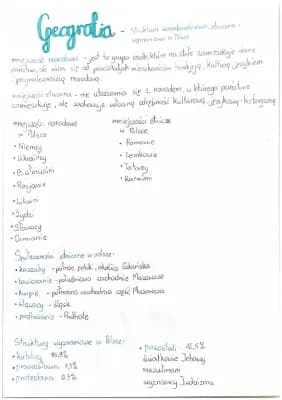 Geografia - struktura narodowościowa, etniczna i
wyznaniowa w Polsce
mniejszość narodowa - jest to grupa osób, która na stałe zamieszkuje dane
państwo, ale różni się od pozostałych mieszkańców tradycją, kulturą, językiem
i przynależnością narodową.
mniejszość etniczna - nie utożsamia się z narodem, u którego państwo
zamieszkuje, ale zachowuje własną odrębność kulturową, językową i historyczną
mniejszości narodowe
w Polsce
• Niemcy
• Ukraińcy
• Białorusini
• Rosjanie
• Litwini
• Żydzi
• Słowacy
• Ormianie
mniejszości etniczne
w Polsce
• Romowie
• Łemkowie
• Tatarzy
• Karaimi
Społeczności etniczne w polsce:
• kaszuby - północ polski, okolice Gdańska
• łowiczanie - południowo zachodnie Mazowsze
• kurpie - północno wschodnia część Mazowsza
• ślązacy - śląsk
• podhalanie - Podhale
Struktury wyznaniowe w Polsce:
• katolicy
• prawosławni
• protestanci 0,3%
• pozostali - 12,5%
świadkowie Jehowy
muzułmanie
wyznawcy Judaizmu